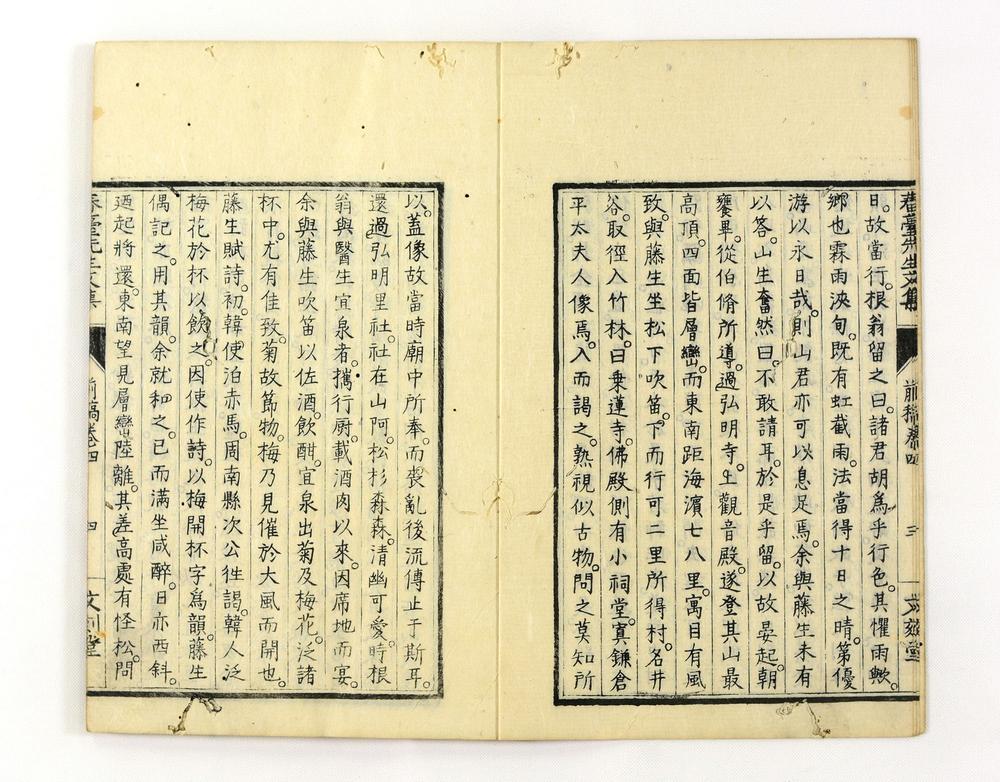 日。故當行。根翁留之曰。諸君胡爲乎行色。其懼雨歟。
鄉也霖雨浹旬。既有虹截雨。法當得十日之晴。第優
游以永日哉。則山君亦可以息足焉。余與藤生未有
以答。山生奮然曰。不敢請耳。於是乎留。以故晏起。朝
饔畢。從伯脩所導。過弘明寺。上觀音殿。遂登其山最
高頂。四面皆層巒。而東南距海濱七八里。寓目有風
致。與藤生坐松下吹笛。下而行可二里所得村。名井
谷。取徑入竹林。曰乗蓮寺。佛殿側有小祠堂。寘鎌倉
平太夫人像焉。入而謁之。熟視似古物。問之莫知所
以。蓋像故當時廟中所奉。而喪亂後流傳止于斯耳。
還過弘明里社。社在山阿。松杉森森。清幽可愛。時根
翁與醫生宜泉者。攜行厨。載酒肉以來。因席地而宴。
余與藤生吹笛以佐酒。飲酣宜泉出菊及梅花。泛諸
杯中。尤有佳致。菊故節物。梅乃見催於大風而開也。
藤生賦詩。初韓使泊赤馬。周南縣次公徃謁。韓人泛
梅花於杯以飲之。因使作詩。以梅開杯字爲韻。藤生
偶記之。用其韻。余就和之。已而滿坐咸醉。日亦西斜。
廼起將還。東南望見層巒陸離。其差高處有怪松。問
前稿卷四
四